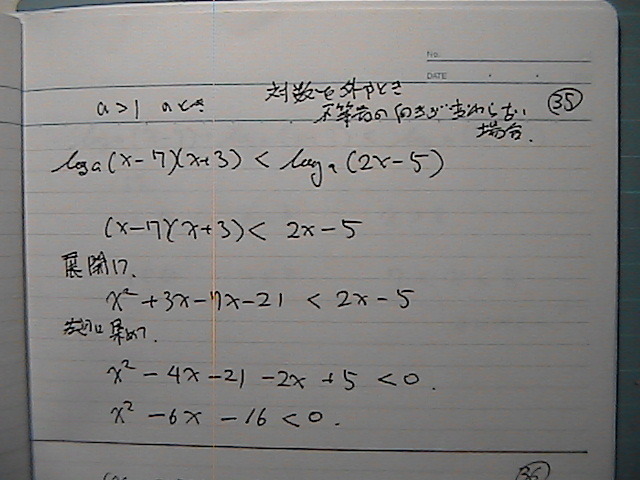 No.
DATE
対数を外すとき
a>1 のとき
不等号の向きが変わらない
場合.
㉟
logₐ(x-7)(x+3) < logₐ(2x-5)
(x-7)(x+3) < 2x-5
展開して、
x²+3x-7x-21 < 2x-5
左辺に集めて、
x²-4x-21-2x+5 <0.
x²-6x-16<0.
㊱